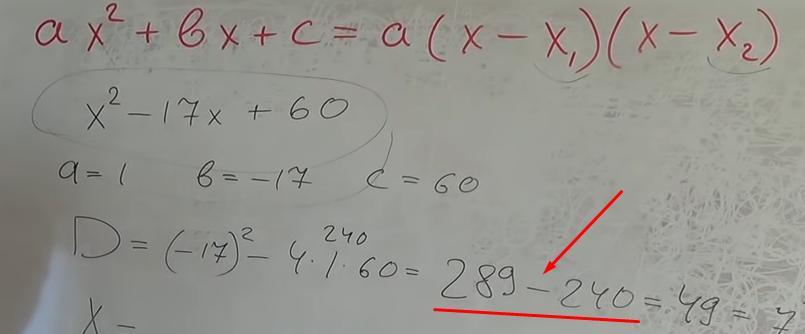 ax² + вx + c = a(x − x₁)(x − x₂)
x² − 17x + 60
a = 1 в = −17 c = 60
240
D = (−17)² − 4·1·60 = 289 − 240 = 49 = 7
x −